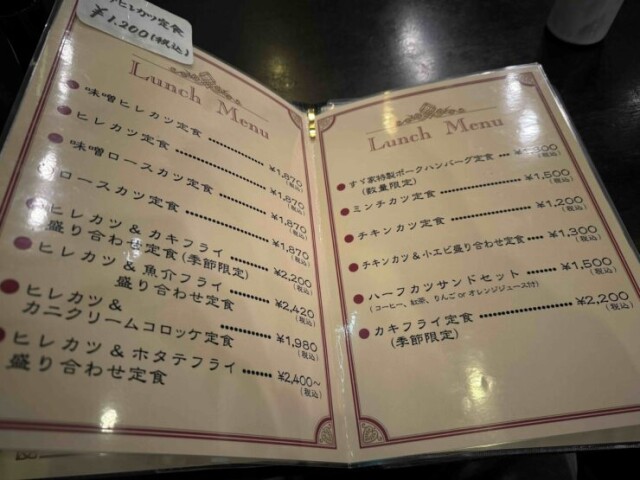 ヒレカツ定食
¥1,200(税込)
Lunch Menu
味噌ヒレカツ定食 ¥1,870
(税込)
ヒレカツ定食 ¥1,870
(税込)
味噌ロースカツ定食 ¥1,870
(税込)
ロースカツ定食 ¥1,870
(税込)
ヒレカツ & カキフライ
盛り合わせ定食(季節限定) ¥2,200
(税込)
ヒレカツ & 魚介フライ
盛り合わせ定食 ¥2,420
(税込)
ヒレカツ &
カニクリームコロッケ定食 ¥1,980
(税込)
ヒレカツ & ホタテフライ
盛り合わせ定食 ¥2,400~
(税込)
Lunch Menu
すゞ家特製ポークハンバーグ定食
(税込)
(数量限定)
ミンチカツ定食 ¥1,500
(税込)
チキンカツ定食 ¥1,200
(税込)
チキンカツ & 小エビ盛り合わせ定食 ¥1,300
(税込)
ハーフカツサンドセット ¥1,500
(税込)
(コーヒー、紅茶、りんご or オレンジジュース付)
カキフライ定食 ¥2,200
(税込)
(季節限定)